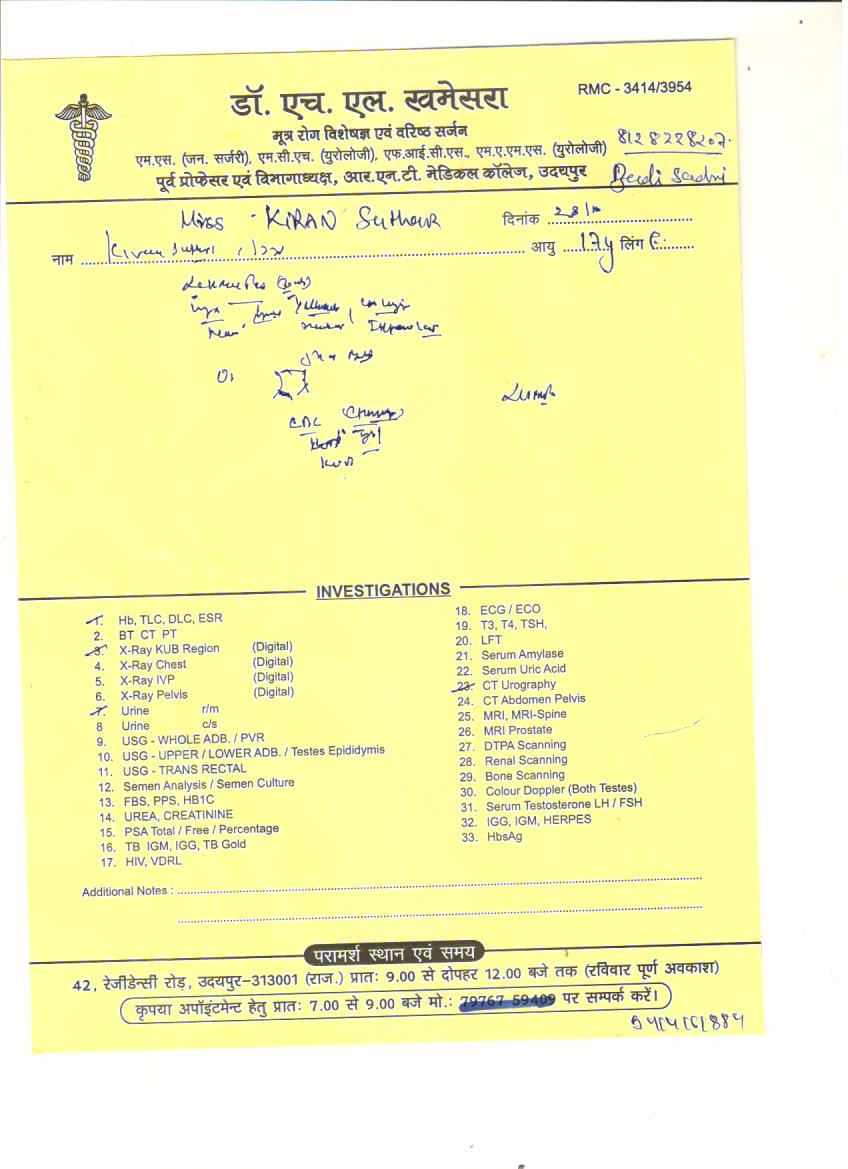 RMC - 3414/3954
डॉ. एच. एल. खमेसरा
मूत्र रोग विशेषज्ञ एवं वरिष्ठ सर्जन
एम.एस. (जन. सर्जरी), एम.सी.एच. (युरोलोजी), एफ.आई.सी.एस., एम.ए.एम.एस. (युरोलोजी)
8128228207.
पूर्व प्रोफेसर एवं विभागाध्यक्ष, आर.एन.टी. मेडिकल कॉलेज, उदयपुर
Miss - KIRAN Suthar
दिनांक
नाम
आयु 17y लिंग F
CBC
INVESTIGATIONS
1. Hb, TLC, DLC, ESR
2. BT CT PT
3. X-Ray KUB Region (Digital)
4. X-Ray Chest (Digital)
5. X-Ray IVP (Digital)
6. X-Ray Pelvis (Digital)
7. Urine r/m
8 Urine c/s
9. USG - WHOLE ADB. / PVR
10. USG - UPPER / LOWER ADB. / Testes Epididymis
11. USG - TRANS RECTAL
12. Semen Analysis / Semen Culture
13. FBS, PPS, HB1C
14. UREA, CREATININE
15. PSA Total / Free / Percentage
16. TB IGM, IGG, TB Gold
17. HIV, VDRL
18. ECG / ECO
19. T3, T4, TSH,
20. LFT
21. Serum Amylase
22. Serum Uric Acid
23. CT Urography
24. CT Abdomen Pelvis
25. MRI, MRI-Spine
26. MRI Prostate
27. DTPA Scanning
28. Renal Scanning
29. Bone Scanning
30. Colour Doppler (Both Testes)
31. Serum Testosterone LH / FSH
32. IGG, IGM, HERPES
33. HbsAg
Additional Notes :
परामर्श स्थान एवं समय
42, रेजीडेन्सी रोड़, उदयपुर-313001 (राज.) प्रातः 9.00 से दोपहर 12.00 बजे तक (रविवार पूर्ण अवकाश)
कृपया अपॉइंटमेन्ट हेतु प्रातः 7.00 से 9.00 बजे मो.: 79767 59409 पर सम्पर्क करें।